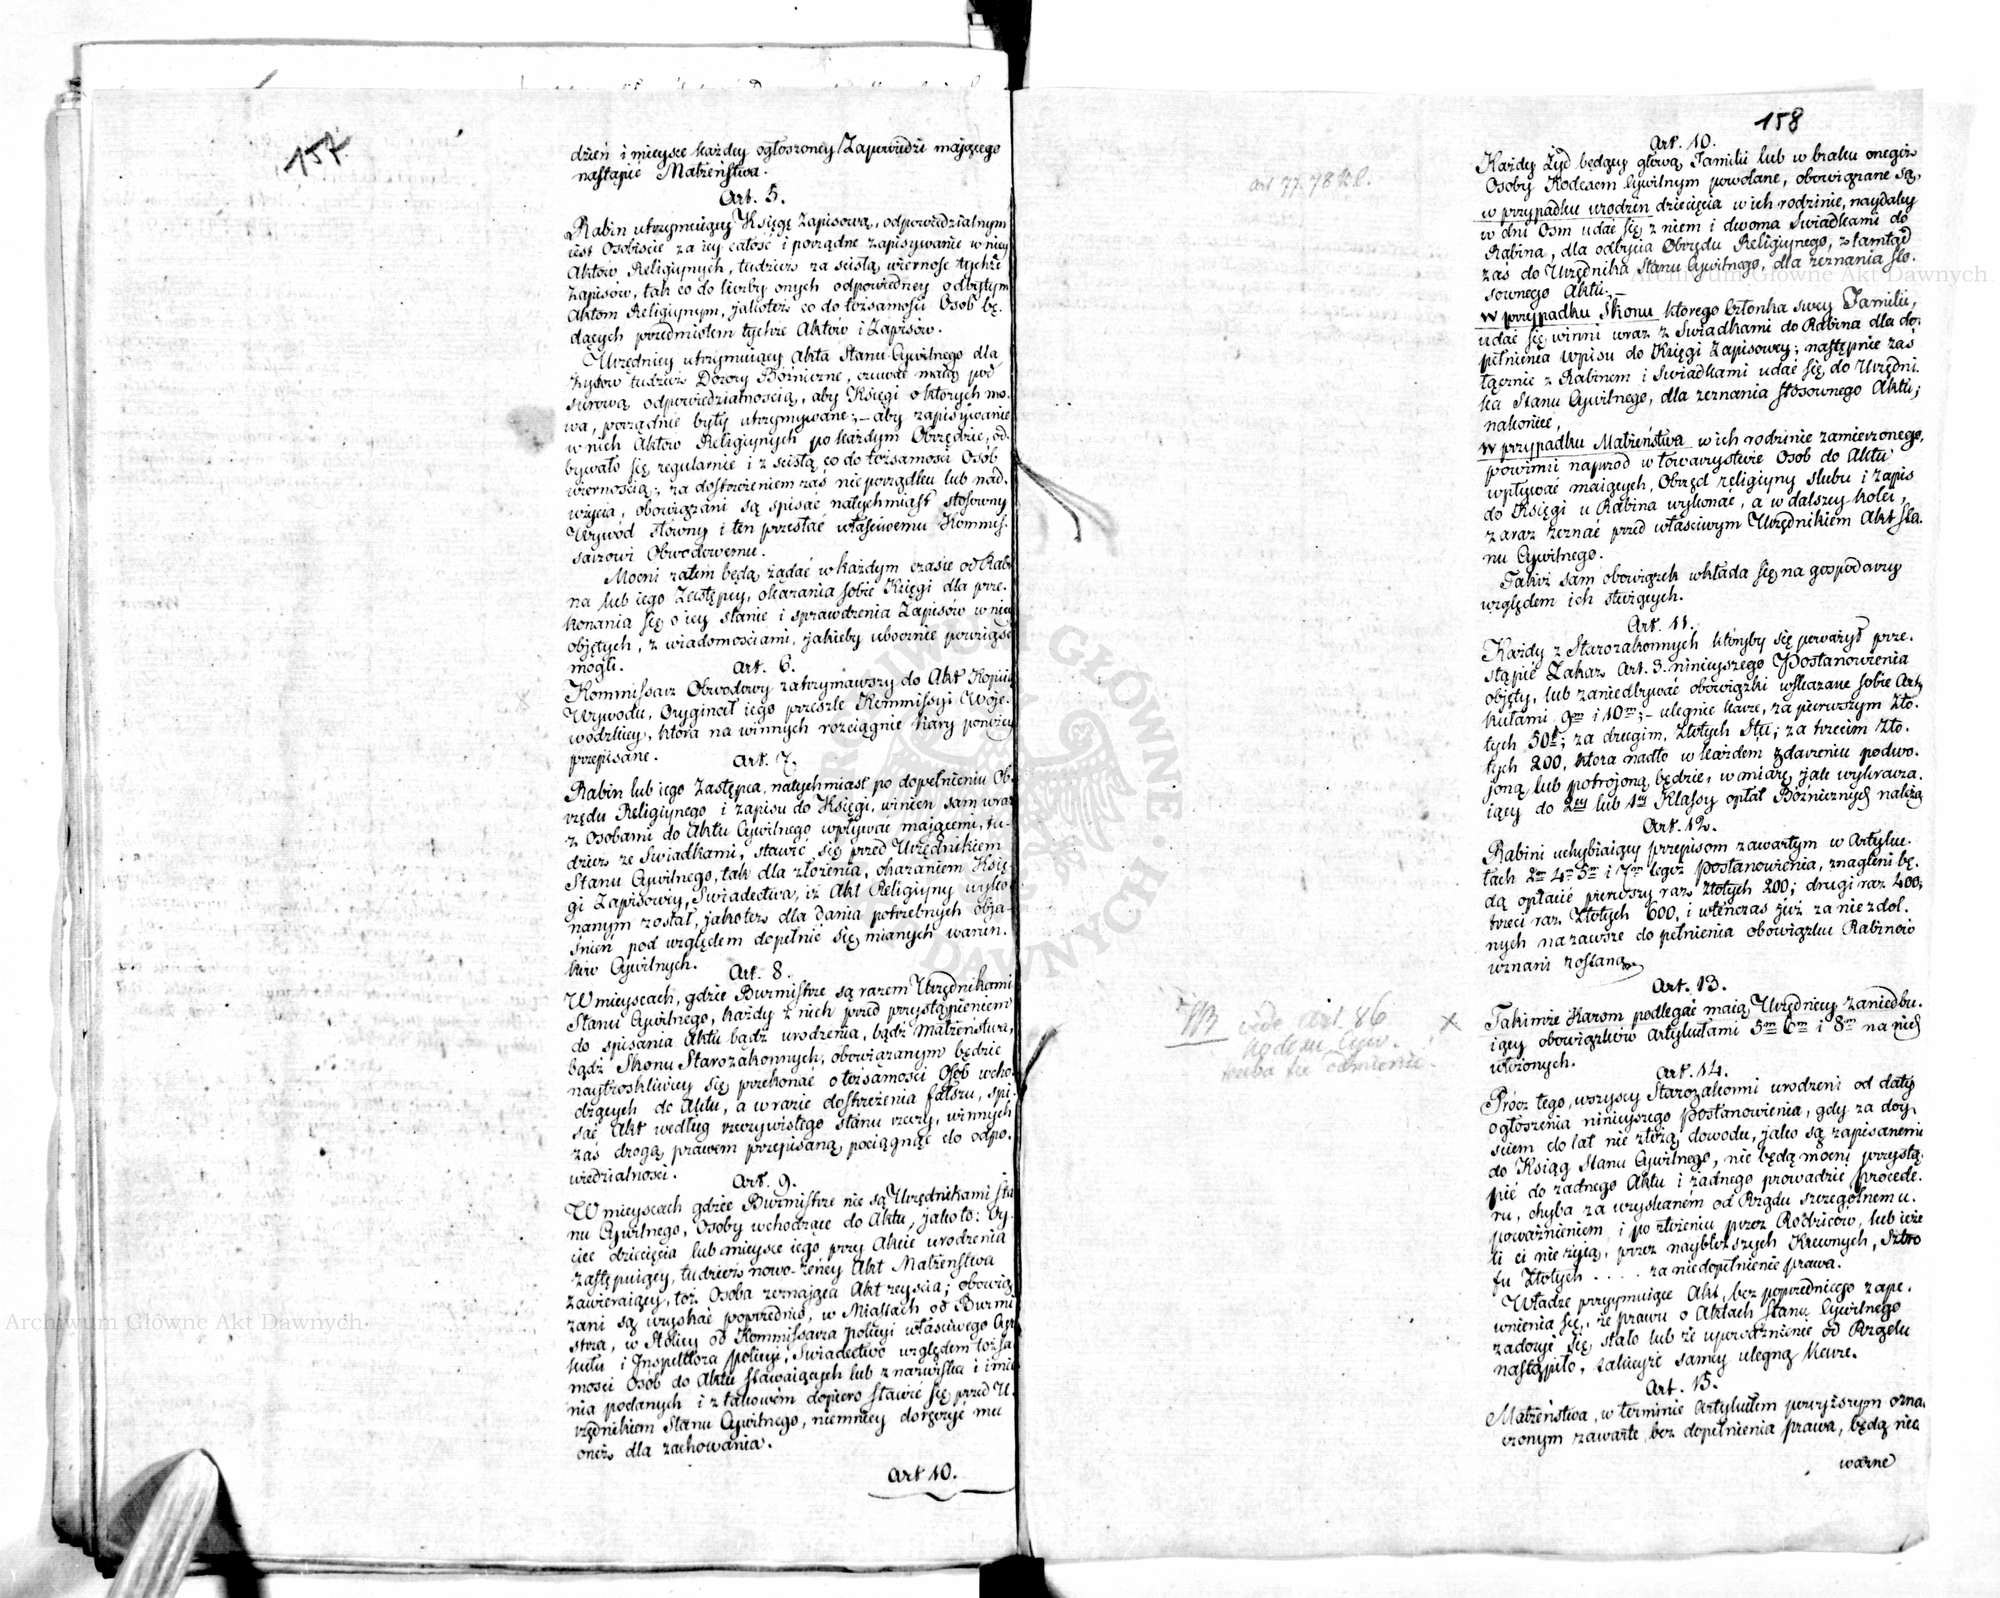 157.
dzień i mieysce każdey ogłoszoney Zapowiedzi maiącego
nastąpić Małżeństwa.
Art. 5.
Rabin utrzymuiący Księgę zapisową, odpowiedzialnym
iest osobiście za iey całość i porządne zapisywanie w niey
Aktów Religiynych, tudzież za ścisłą wierność tychże
zapisów, tak co do liczby onych odpowiedney odbytym
Aktom Religiynym, jakoteż co do tożsamości Osób bę-
dących przedmiotem tychże Aktów i Zapisów.
Urzędnicy utrzymuiący Akta Stanu Cywilnego dla
Żydów tudzież Dozory Bóżniczne, czuwać maią pod
surową odpowiedzialnością, aby Księgi o których mo-
wa, porządnie były utrzymywane; – aby zapisywanie
w nich Aktów Religiynych po każdym Obrzędzie, od-
bywało się regularnie i z ścisłą co do tożsamości Osób
wiernością; za dostrzeżeniem zaś nieporządku lub nad-
użycia, obowiązani są spisać natychmiast stosowny
Wywód słowny i ten przesłać właściwemu Kommis-
sarzowi Obwodowemu.
Mocni zatem będą żądać w każdym czasie od Rabi-
na lub iego Zastępcy, okazania sobie Księgi dla prze-
konania się o iey stanie i sprawdzenia Zapisów w niey
objętych, z wiadomościami, jakieby ubocznie powziąść
mogli.
Art. 6.
Kommissarz Obwodowy zatrzymawszy do Akt Kopiią
Wywodu, Oryginał iego prześle Kommissyi Woje-
wódzkiey, która na winnych rozciągnie kary poniżey
przepisane.
Art. 7.
Rabin lub iego Zastępca, natychmiast po dopełnieniu Ob-
rzędu Religiynego i zapisu do Księgi, winien sam wraz
z Osobami do Aktu Cywilnego wpływać maiącemi, tu-
dzież ze Świadkami, stawić się przed Urzędnikiem
Stanu Cywilnego, tak dla złożenia, okazaniem Księ-
gi Zapisowey, Świadectwa, iż Akt Religiyny wyko-
nanym został, jakoteż dla dania potrzebnych obja-
śnień pod względem dopełnić się mianych warun-
ków Cywilnych.
Art. 8.
W mieyscach, gdzie Burmistrze są razem Urzędnikami
Stanu Cywilnego, każdy z nich przed przystąpieniem
do spisania Aktu bądź urodzenia, bądź Małżeństwa,
bądź Skonu Starozakonnych, obowiązanym będzie
naytroskliwiey się przekonać o tożsamości Osób wcho-
dzących do Aktu, a w razie dostrzeżenia fałszu, spi-
sać Akt według rzeczywistego stanu rzeczy, winnych
zaś drogą prawem przepisaną, pociągnąć do odpo-
wiedzialności.
Art. 9.
W mieyscach gdzie Burmistrze nie są Urzędnikami Sta-
nu Cywilnego, Osoby wchodzące do Aktu, jako to: Oy-
ciec dziecięcia lub mieysce iego przy Akcie urodzenia
zastępuiący, tudzież nowo-żeńcy Akt Małżeństwa
zawieraiący, toż Osoba zeznaiąca Akt zeyścia; obowią-
zani są uzyskać poprzednio, w Miastach od Burmi-
strza, w Stolicy od Kommissarza policyi właściwego Cyr-
kułu i Inspektora policyi, Świadectwo względem tożsa-
mości Osób do Aktu stawaiących lub z nazwiska i imie-
nia podanych i z takowém dopiero stawić się przed U-
rzędnikiem Stanu Cywilnego, niemniey doręczyć mu
oneż dla zachowania.
Art 10.
158
art 77. 78 K.C.
Art. 10.
Każdy Żyd będący głową Familii lub w braku onegoż
Osoby Kodexem Cywilnym powołane, obowiązane są,
w przypadku urodzin dziecięcia w ich rodzinie, naydaley
w dni Ośm udać się z niem i dwoma Świadkami do
Rabina, dla odbycia Obrzędu Religiynego, ztamtąd
zaś do Urzędnika Stanu Cywilnego, dla zeznania sto-
sownego Aktu; –
w przypadku Skonu którego Członka swey Familii,
udać się winni wraz z Świadkami do Rabina dla do-
pełnienia wpisu do Księgi Zapisowey; następnie zaś
łącznie z Rabinem i Świadkami udać się do Urzędni-
ka Stanu Cywilnego, dla zeznania stosownego Aktu;
nakoniec,
w przypadku Małżeństwa w ich rodzinie zamierzonego,
powinni naprzód w towarzystwie Osób do Aktu
wpływać maiących, Obrzęd religiyny ślubu i zapis
do Księgi u Rabina wykonać, a w dalszey kolei,
zaraz zeznać przed właściwym Urzędnikiem Akt Sta-
nu Cywilnego.
Takiż sam obowiązek wkłada się na gospodarzy
względem ich służących.
Art. 11.
Każdy z Starozakonnych któryby się poważył prze-
stąpić Zakaz Art. 3. ninieyszego Postanowienia
objęty, lub zaniedbywać obowiązki wskazane sobie Art-
kułami 9m i 10m; – ulegnie karze, za pierwszym Zło-
tych 50t; za drugim, Złotych Stu; za trzecim Zło-
tych 200, która nadto w każdem zdarzeniu podwo-
joną lub potrójoną będzie, w miarę, jak wykracza-
iący do 2ey lub 1ey Klassy opłat Bóżnicznych należą
Art. 12.
Rabini uchybiaiący przepisom zawartym w Artyku-
łach 2m 4m 5m i 7m tegoż Postanowienia, znagleni bę-
dą opłacić pierwszy raz Złotych 200; drugi raz 400;
trzeci raz Złotych 600, i wtenczas już za niezdol-
nych na zawsze do pełnienia obowiązku Rabinów
uznani zostaną.
Art. 13.
Takimże Karom podlegać maią, Urzędnicy zaniedbu-
iący obowiązków Artykułami 5m 6m i 8m na nich
włożonych.
NB vide Art. 86
Kodexu Cyw.
trzeba tu odmienić.
Art. 14.
Prócz tego, wszyscy Starozakonni urodzeni od daty
ogłoszenia ninieyszego Postanowienia, gdy za doy-
ściem do lat nie złożą dowodu, jako są zapisanemi
do Ksiąg Stanu Cywilnego, nie będą mocni przystą-
pić do żadnego Aktu i żadnego prowadzić procede-
ru, chyba za uzyskaném od Rządu szczególnem u-
poważnieniem i po złożeniu przez Rodziców, lub ieże-
li ci nie żyią, przez naybliższych Krewnych, Sztro-
fu Złotych . . . . za niedopełnienie prawa.
Władze przyymuiące Akt, bez poprzedniego zape-
wnienia się, że prawu o Aktach Stanu Cywilnego
zadosyć się stało lub że upoważnienie od Rządu
nastąpiło, takieyże samey ulegną karze.
Art. 15.
Małżeństwa, w terminie Artykułem powyższym ozna-
czonym zawarte, bez dopełnienia prawa, będą nie-
ważne
Archiwum Główne Akt Dawnych
Archiwum Główne Akt Dawnych
ARCHIWUM GŁÓWNE AKT DAWNYCH